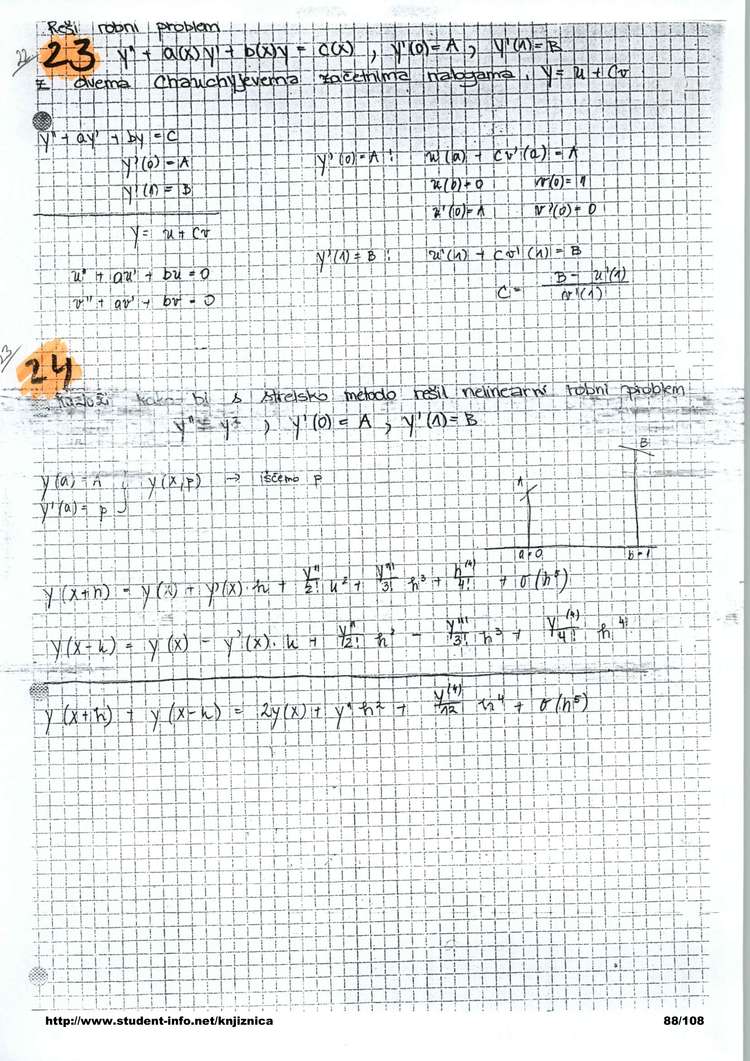 Reši robni problem
22 23 y'' + a(x)y' + b(x)y = c(x) , y'(0)=A , y'(1)=B
z dvema Chauchyjevema začetnima nalogama. y = u + Cv
y'' + ay' + by = C
y'(0) = A
y'(1) = B
y'(0) = A : u'(a) + Cv'(a) = A
u(0) = 0 v(0) = 1
u'(0) = A v'(0) = 0
y = u + Cv
y'(1) = B : u'(1) + Cv'(1) = B
C = \frac{B - u'(1)}{v'(1)}
u'' + au' + bu = 0
v'' + av' + bv = 0
23 24
Razloži kako bi s strelsko metodo rešil nelinearni robni problem
y'' = y² , y'(0) = A , y'(1) = B
y(a) = A
y'(a) = p
y(x,p) → iščemo p
A
B
a=0
b=1
y(x+h) = y(x) + y'(x)·h + \frac{y''}{2!} h² + \frac{y'''}{3!} h³ + \frac{h^{(4)}}{4!} + σ(h⁵)
y(x-h) = y(x) - y'(x)·h + \frac{y''}{2!} h² - \frac{y'''}{3!} h³ + \frac{y^{(4)}}{4!} h⁴
y(x+h) + y(x-h) = 2y(x) + y''h² + \frac{y^{(4)}}{12} h⁴ + σ(h⁵)
http://www.student-info.net/knjiznica 88/108